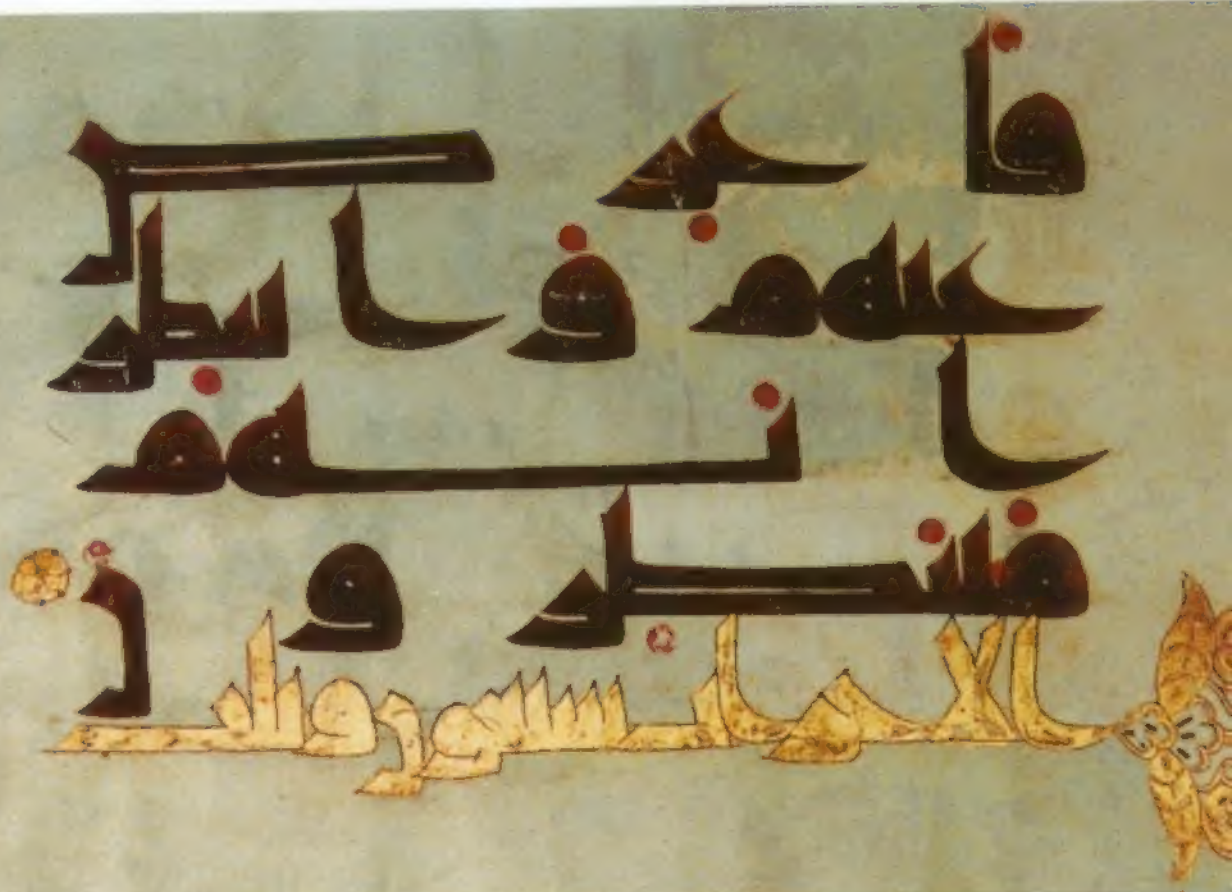 فاعرض
عنهم وانتظر
انهم
منتظرون
الاحزاب سبعون وثلث